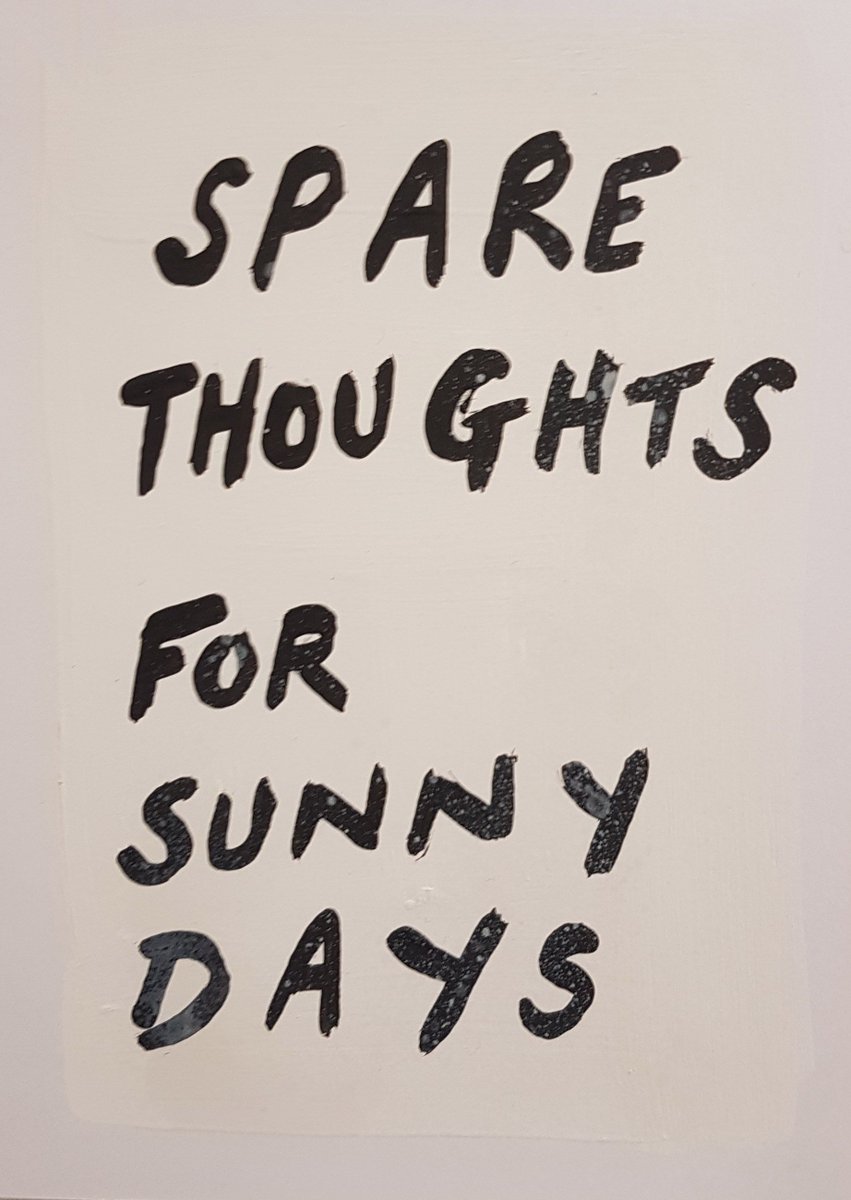 SPARE
THOUGHTS
FOR
SUNNY
DAYS